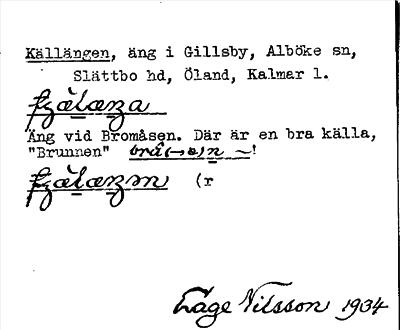 Källängen, äng i Gillsby, Alböke sn,
Slättbo hd, Öland, Kalmar l.
Äng vid Bromåsen. Där är en bra källa,
"Brunnen"
(r
Tage Nilsson 1934